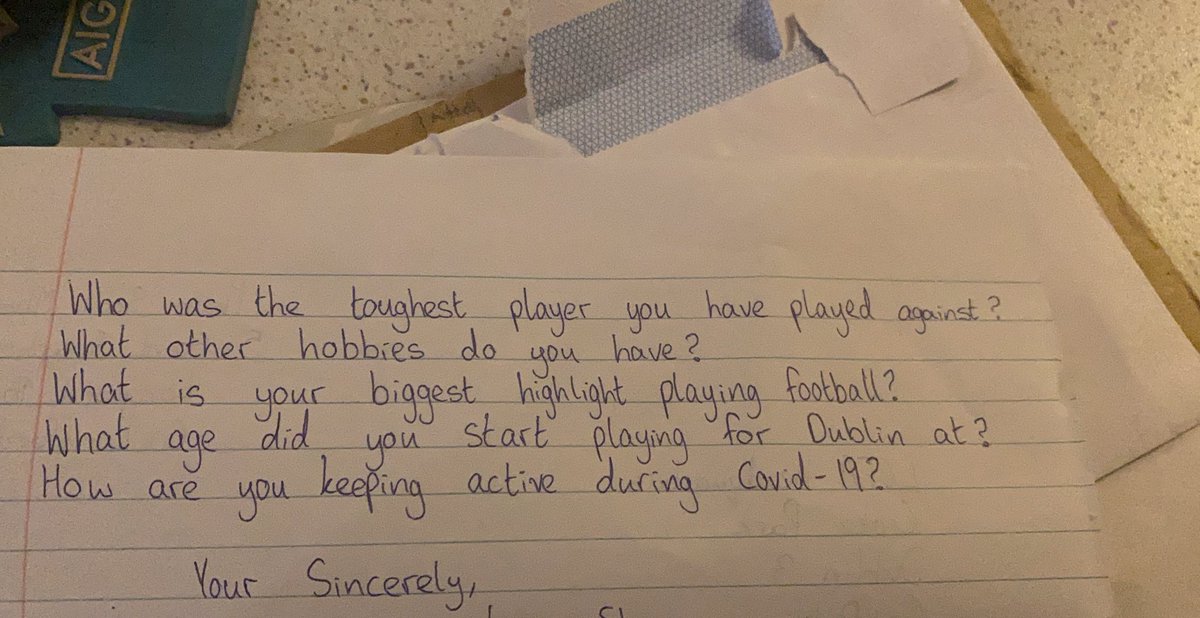 AIG
Who was the toughest player you have played against?
What other hobbies do you have?
What is your biggest highlight playing football?
What age did you start playing for Dublin at?
How are you keeping active during Covid-19?
Your Sincerely,